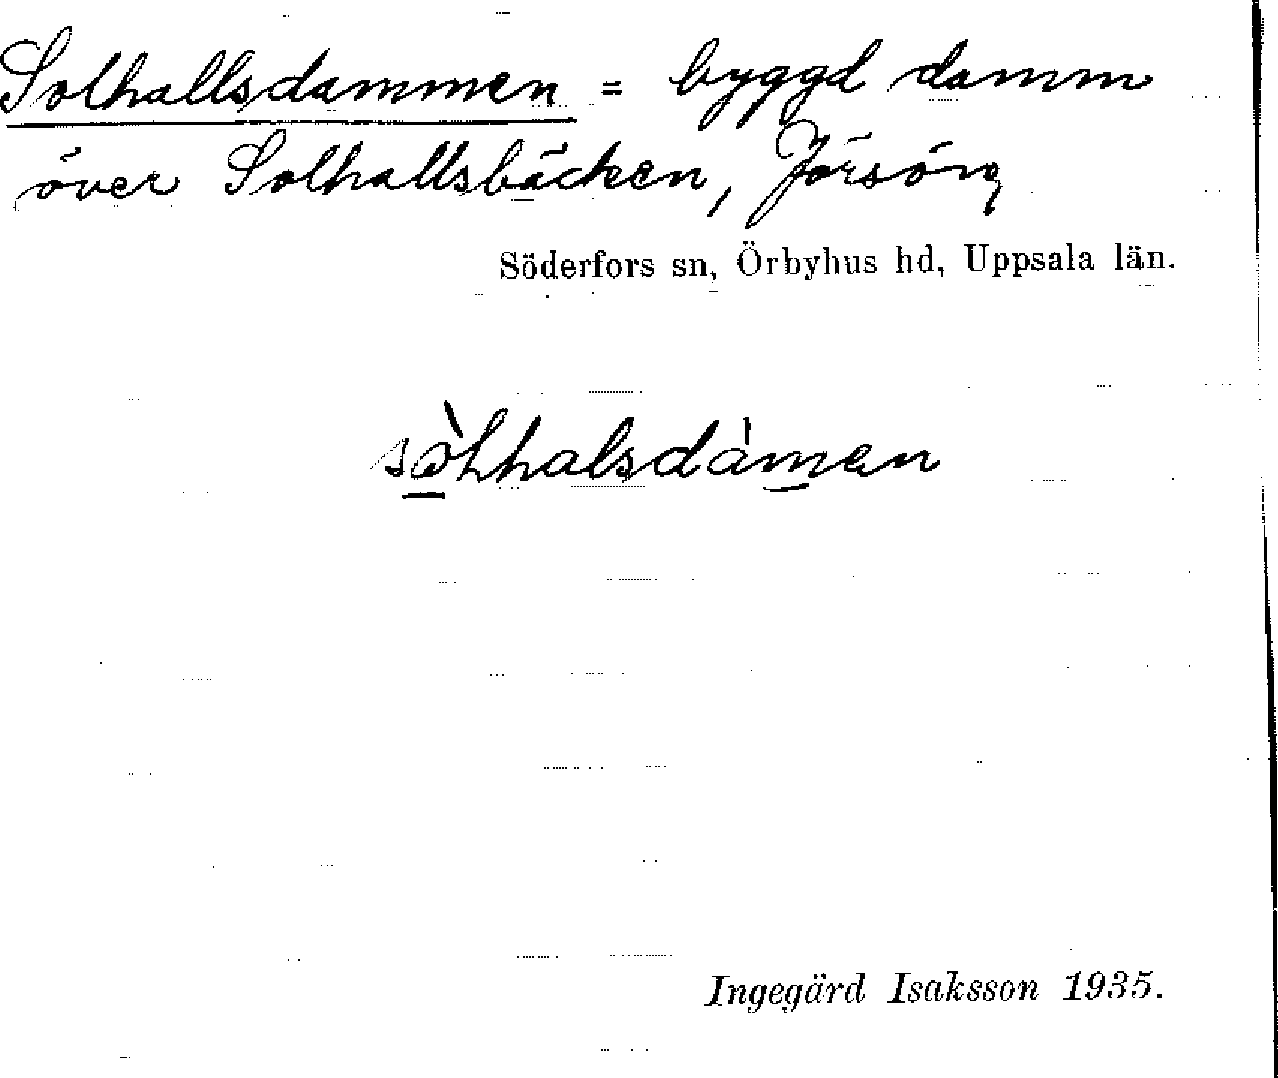 Solhallsdammen = byggd damm
över Solhallsbäcken, Jörsön
Söderfors sn, Örbyhus hd, Uppsala län.
Ingegärd Isaksson 1935.